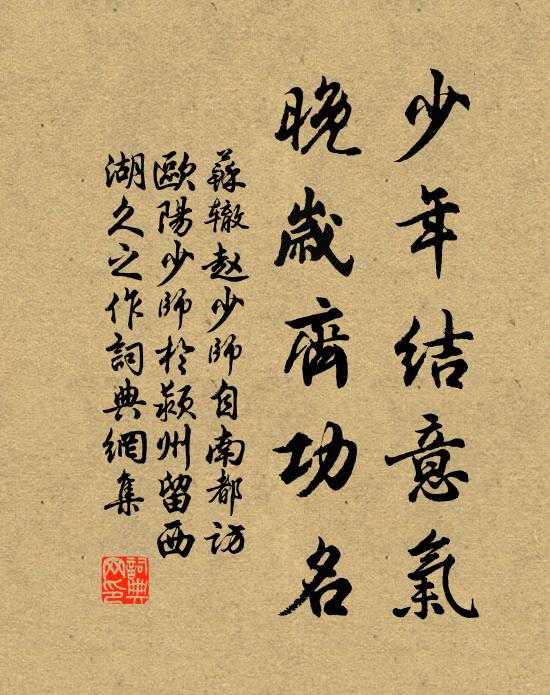 少年結意氣
晚歲齊功名
蘇辙赵少師自南都訪
歐陽少師於颍州留西
湖久之作詞典網集
詞典網印